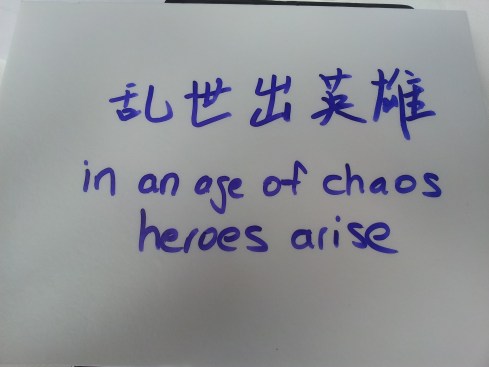 乱世出英雄
in an age of chaos
heroes arise